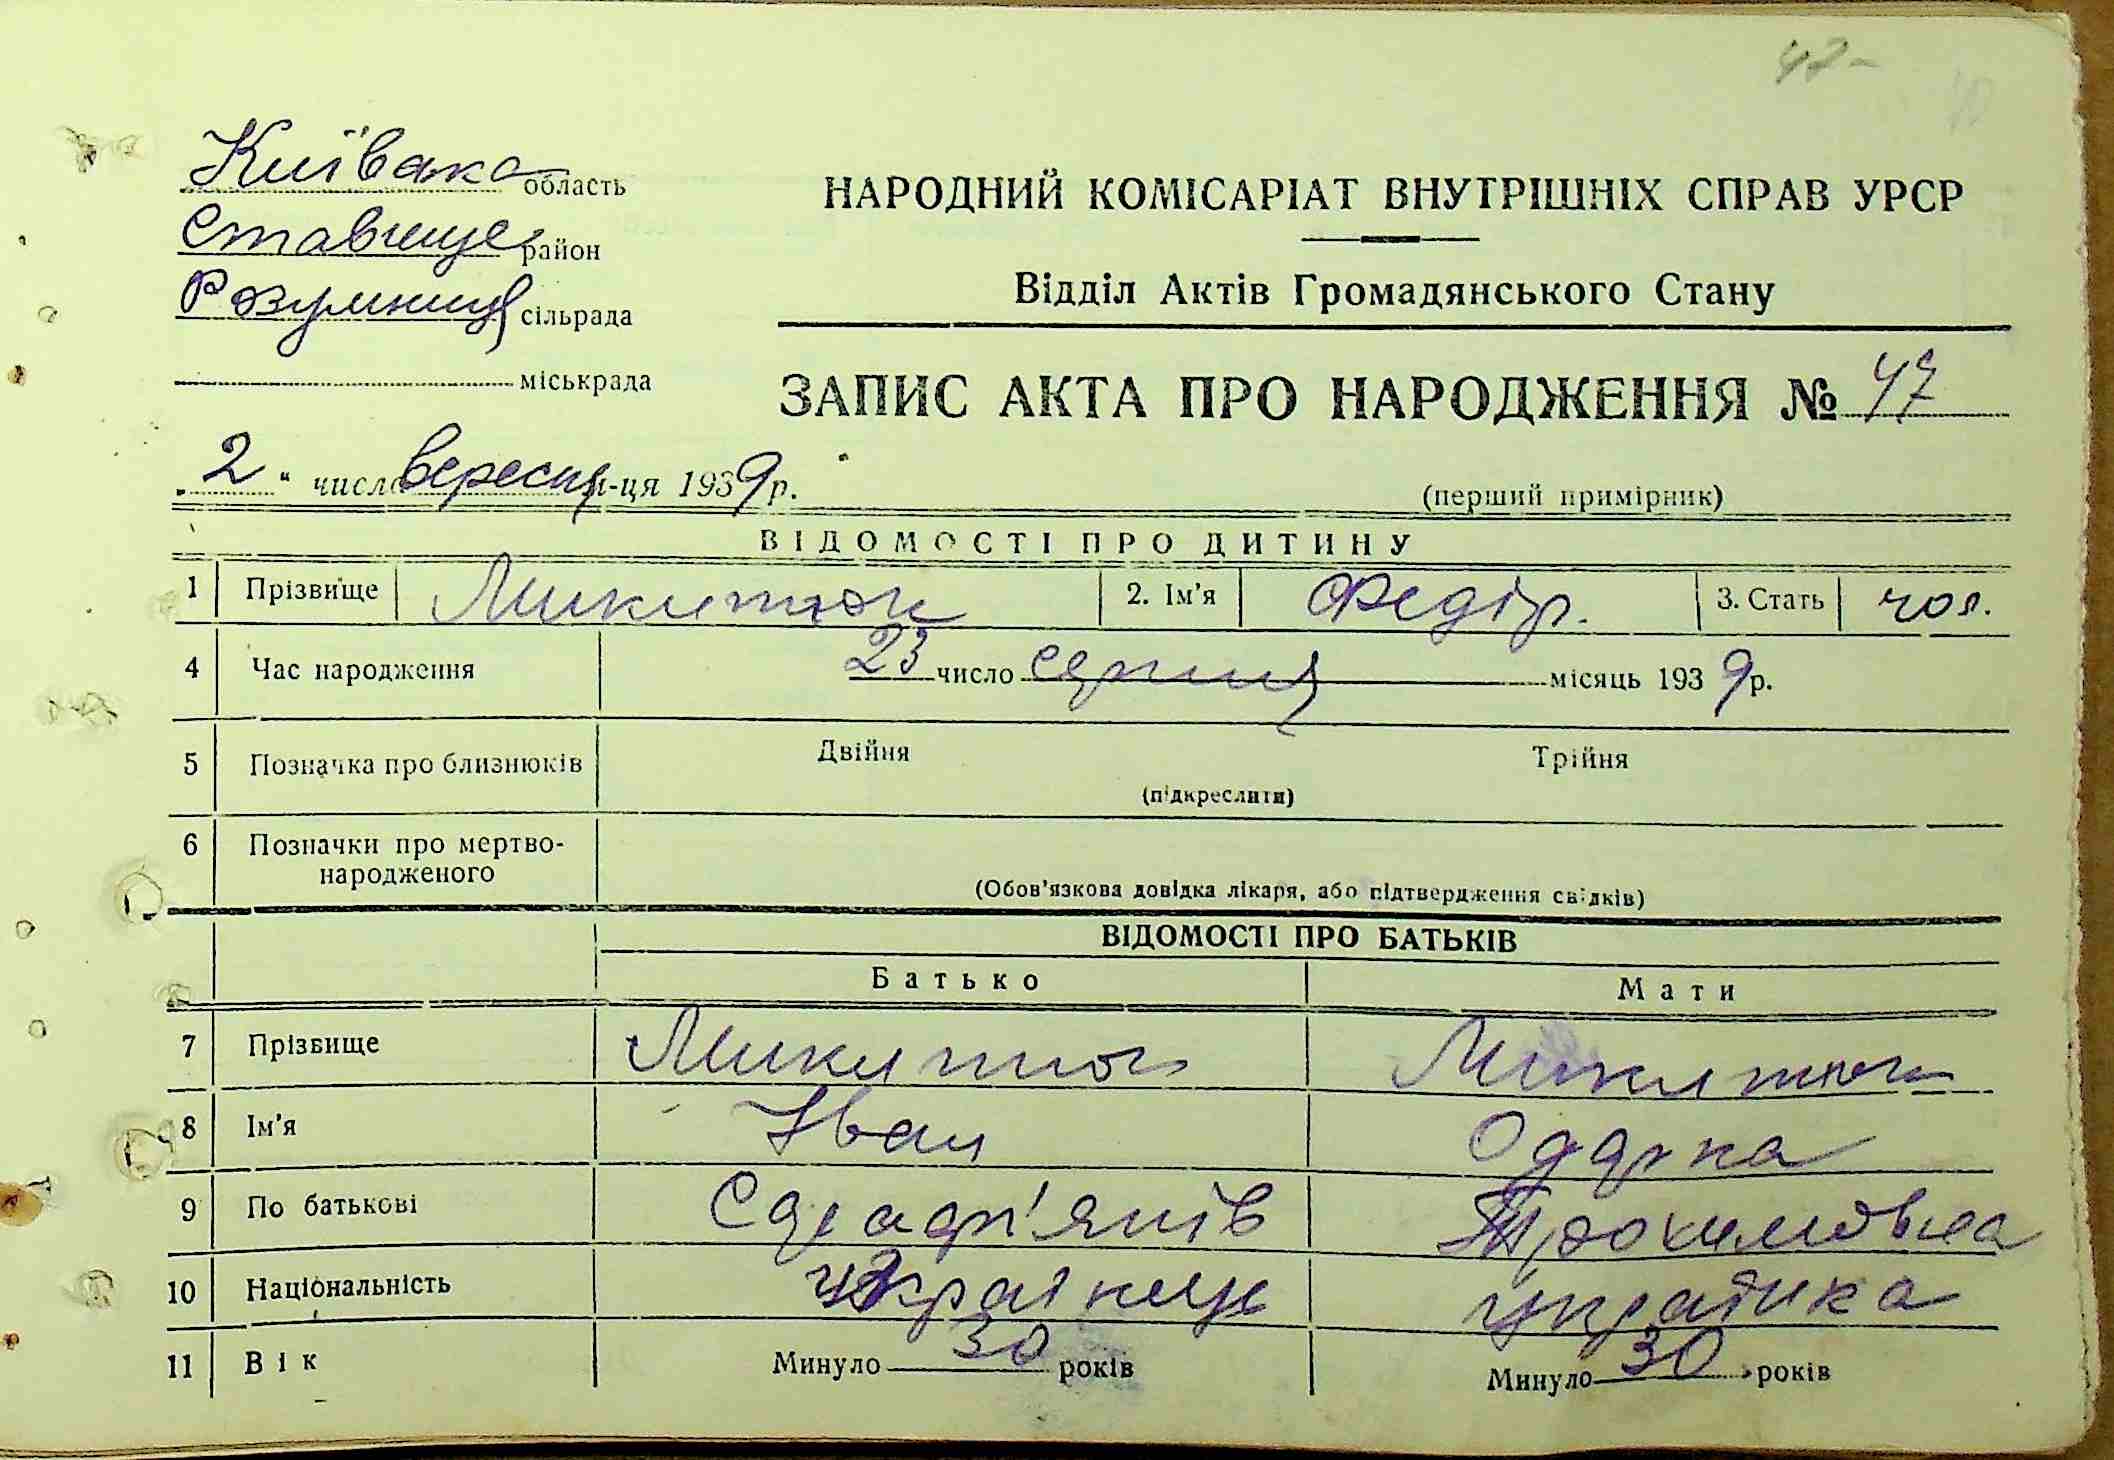 47-
Київська область
Ставище район
Розумниц сільрада
міськрада
НАРОДНИЙ КОМІСАРІАТ ВНУТРІШНІХ СПРАВ УРСР
Відділ Актів Громадянського Стану
ЗАПИС АКТА ПРО НАРОДЖЕННЯ № 47
„2“ число вересня м-ця 1939 р.
(перший примірник)
ВІДОМОСТІ ПРО ДИТИНУ
1 Прізвище Микитюк 2. Ім'я Федір. 3. Стать чол.
4 Час народження 23 число серпня місяць 1939 р.
5 Позначка про близнюків Двійня Трійня
(підкреслити)
6 Позначки про мертво-
народженого
(Обов'язкова довідка лікаря, або підтвердження свідків)
ВІДОМОСТІ ПРО БАТЬКІВ
Батько Мати
7 Прізвище Микитюк Микитюк
8 Ім'я Іван Оддрка
9 По батькові Трохимовна
10 Національність українець українка
11 Вік Минуло 30 років Минуло 30 років